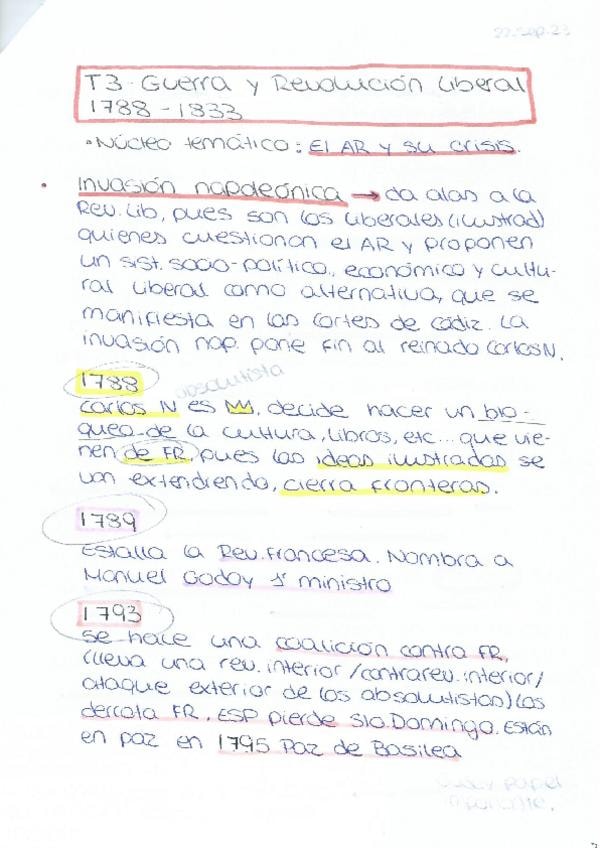 22.Sep.23
T3. Guerra y Revolución Liberal
1788 - 1833
• Núcleo temático: El AR y su crisis.
• Invasión napoleónica → da alas a la
Rev. Lib, pues son los liberales (ilustrad)
quienes cuestionan el AR y proponen
un sist. socio-político, económico y cultu-
ral liberal como alternativa, que se
manifiesta en las Cortes de Cádiz. La
invasión nap. pone fin al reinado Carlos IV.
1788
absolutista
Carlos IV es , decide hacer un blo-
queo de la cultura, libros, etc... que vie-
nen de FR, pues las ideas ilustradas se
van extendiendo, cierra fronteras.
1789
Estalla la Rev. Francesa. Nombra a
Manuel Godoy 1º ministro
1793
Se hace una coalición contra FR,
(lleva una rev. interior/contrarev. interior/
ataque exterior de los absolutistas) los
derrota FR, ESP pierde Sto. Domingo. Están
en paz en 1795 Paz de Basilea
papel